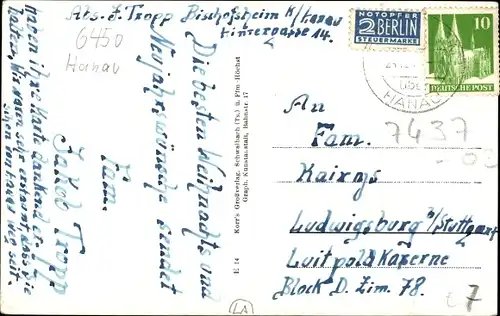 Abs. J. Tropp Bischofsheim K/Hanau
Hintergasse 14.
6450
Hanau
NOTOPFER
2 BERLIN
STEUERMARKE
10
DEUTSCHE POST
HANAU
Die besten Weihnachts und
Neujahrswünsche sendet
Fam.
Jakob Tropp
Haben ihre Karte dankend er-
halten, Wir waren sehr erstaunt, dass Sie
schon von Hanau weg seit.
Korr's Großverlag, Schwalbach (Ts.) u. Ffm.-Höchst
Graph. Kunstanstalt, Bahnstr. 17
E 14
LA
An
Fam.
7437
Kairys
Ludwigsburg b/Stuttgart
Luitpold Kaserne
Block D. Zim 78.